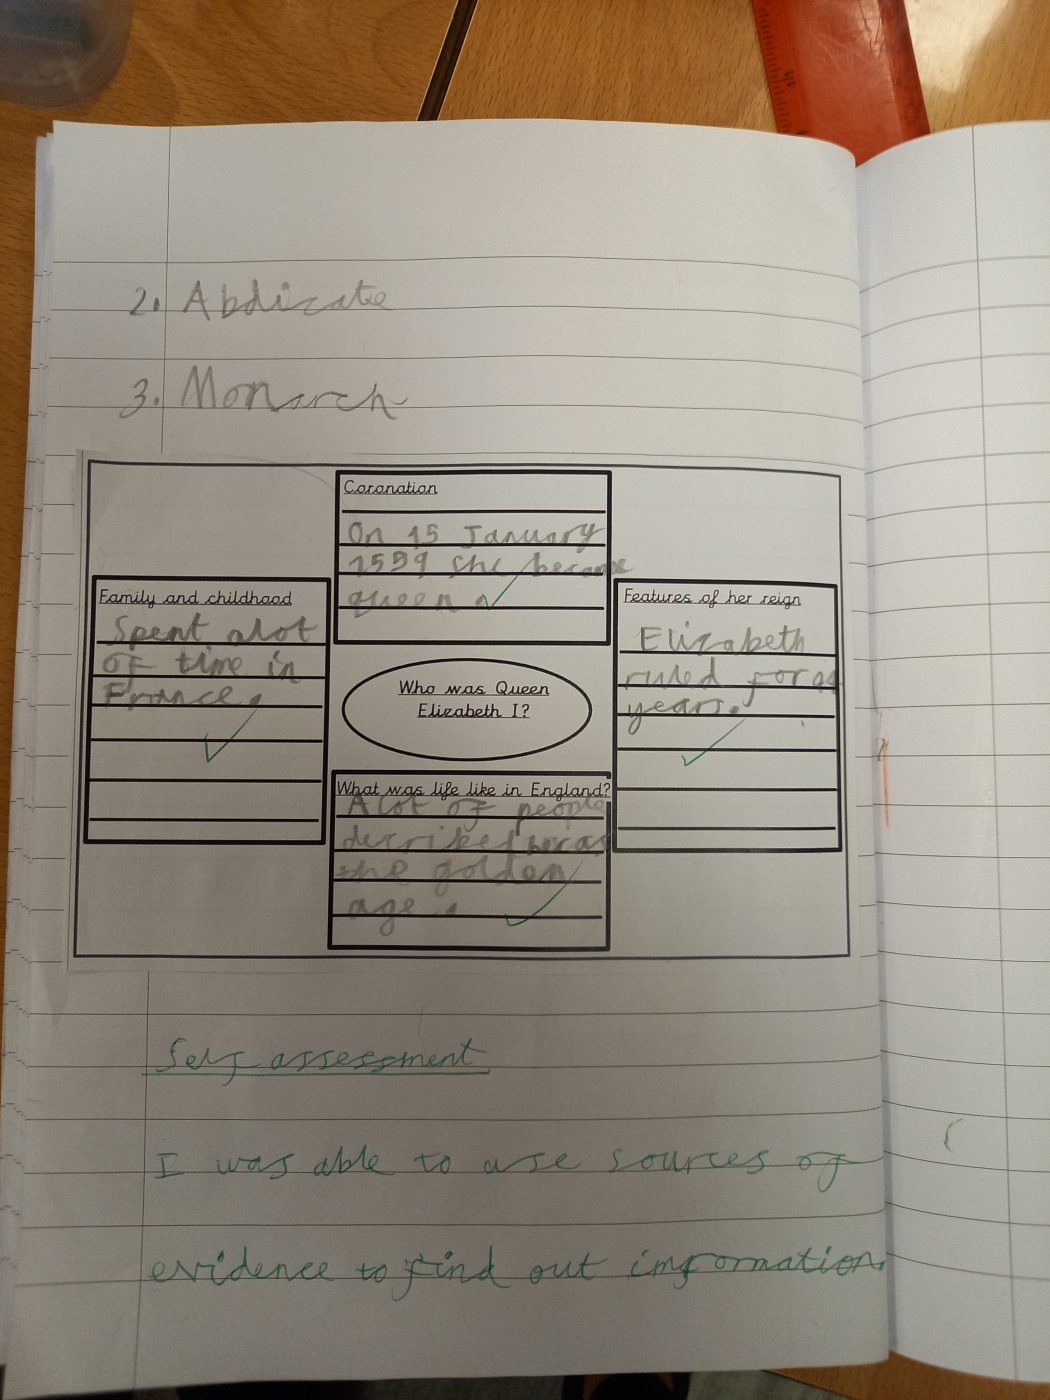 2. Abdicate
3. Monarch
Coronation
On 15 January
1559 she became
queen
Family and childhood
Spent alot
of time in
France.
Features of her reign
Elizabeth
ruled for
years.
Who was Queen
Elizabeth I?
What was life like in England?
A lot of people
the golden
age.
Self assessment
I was able to use sources of
evidence to find out information.